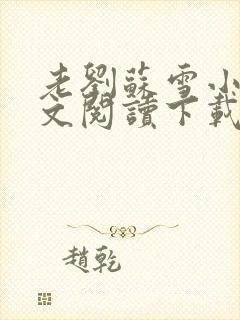 老劉蘇雪小
文閱讀下載
趙乾